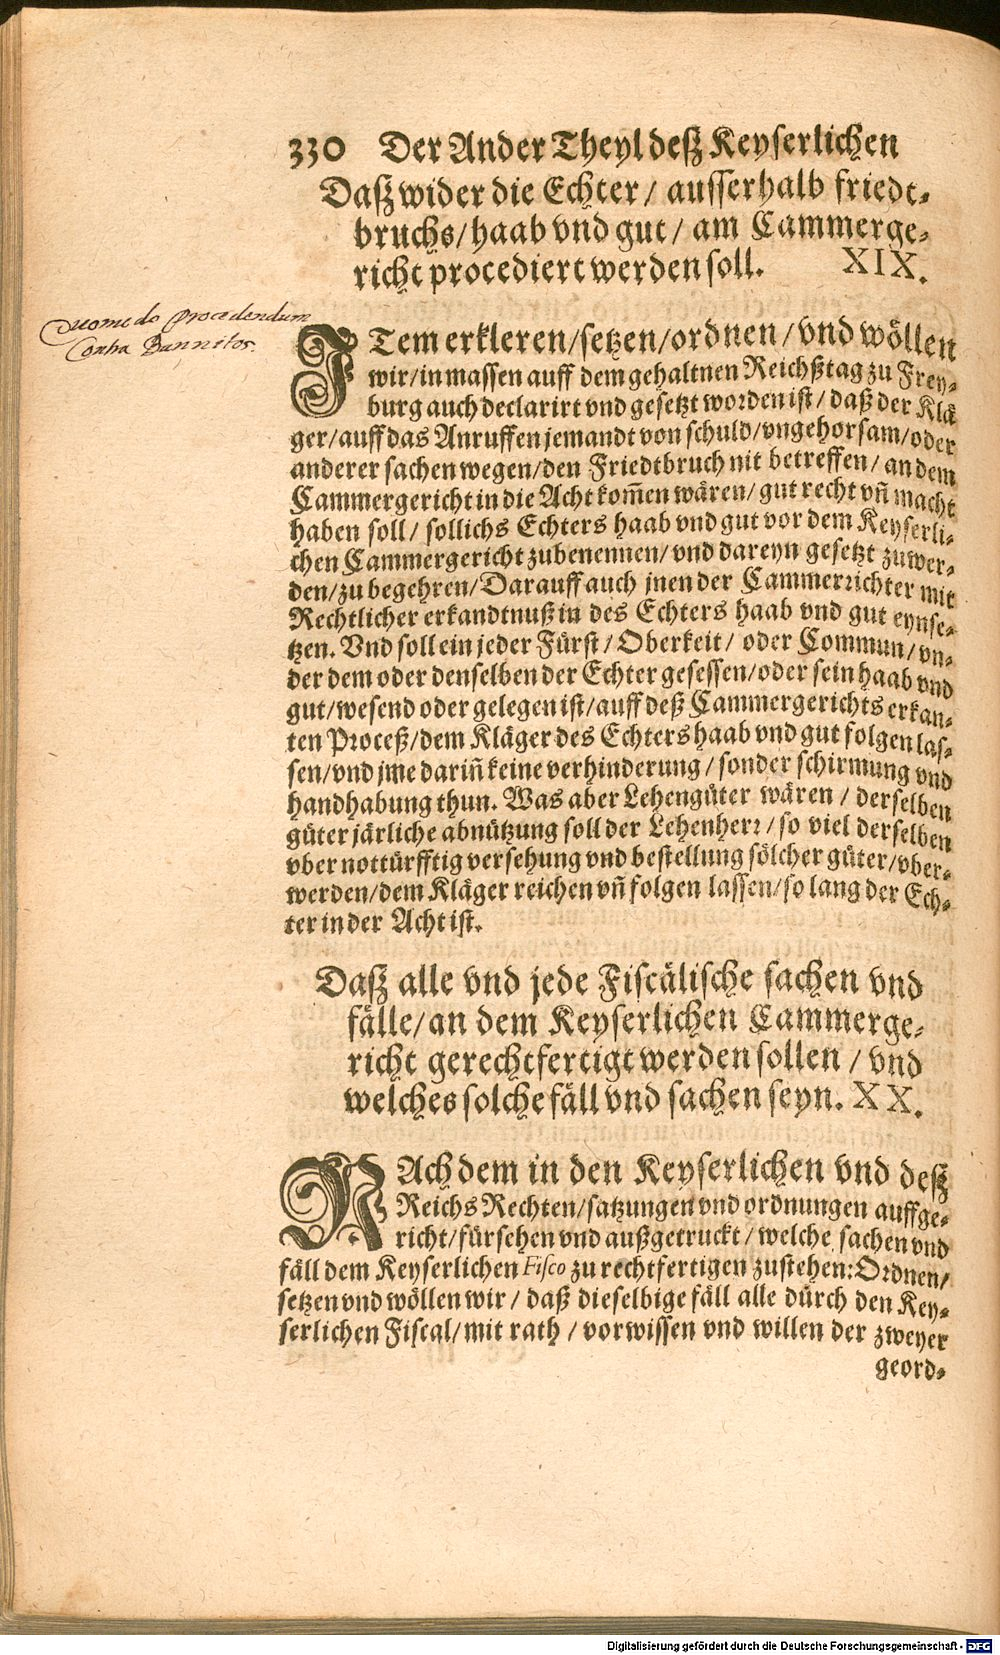 330 Der Ander Theyl deß Keyserlichen
Daß wider die Echter / ausserhalb friedt⸗
bruchs / haab vnd gut / am Cammerge⸗
richt procediert werden soll. XIX.
Quomodo procedendum
Contra Bannitos.
ITem erkleren / setzen / ordnen / vnd wöllen
wir / inmassen auff dem gehaltnen Reichßtag zu Frey⸗
burg auch declarirt vnd gesetzt worden ist / daß der Klä
ger / auff das Anruffen jemandt von schuld / vngehorsam / oder
anderer sachen wegen / den Friedtbruch nit betreffen / an dem
Cammergericht in die Acht kom̄en wären / gut recht vn̄ macht
haben soll / sollichs Echters haab vnd gut vor dem Keyserli⸗
chen Cammergericht zubenennen / vnd dareyn gesetzt zuwer⸗
den / zu begehren / Darauff auch jnen der Cammerrichter mit
Rechtlicher erkandtnuß in des Echters haab vnd gut eynse⸗
tzen. Vnd soll ein jeder Fürst / Oberkeit / oder Commun / vn⸗
der dem oder denselben der Echter gesessen / oder sein haab vnd
gut / wesend oder gelegen ist / auff deß Cammergerichts erkan⸗
ten Proceß / dem Kläger des Echters haab vnd gut folgen las⸗
sen / vnd jme dariñ keine verhinderung / sonder schirmung vnd
handhabung thun. Was aber Lehengüter wären / derselben
güter järliche abnützung soll der Lehenherr / so viel derselben
vber nottürfftig versehung vnd bestellung sölcher güter / vber⸗
werden / dem Kläger reichen vn̄ folgen lassen / so lang der Ech⸗
ter in der Acht ist.
Daß alle vnd jede Fiscälische sachen vnd
fälle / an dem Keyserlichen Cammerge⸗
richt gerechtfertigt werden sollen / vnd
welches solche fäll vnd sachen seyn. XX.
NAch dem in den Keyserlichen vnd deß
Reichs Rechten / satzungen vnd ordnungen auffge⸗
richt / fürsehen vnd außgetruckt / welche sachen vnd
fäll dem Keyserlichen Fisco zu rechtfertigen zustehen: Ordnen /
setzen vnd wöllen wir / daß dieselbige fäll alle durch den Key⸗
serlichen Fiscal / mit rath / vorwissen vnd willen der zweyer
geord⸗
Digitalisierung gefördert durch die Deutsche Forschungsgemeinschaft - DFG